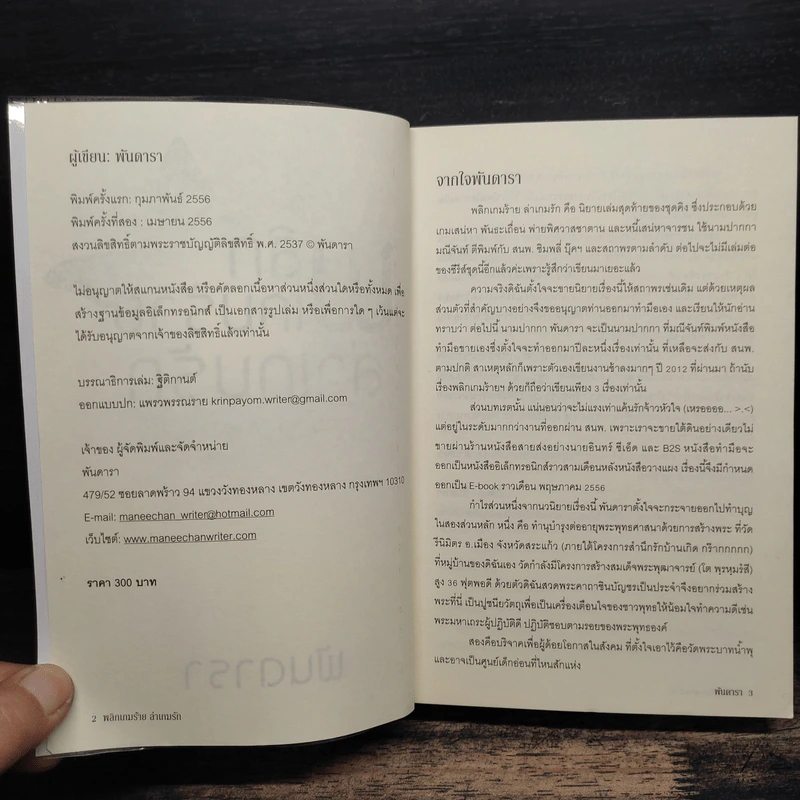 ผู้เขียน: พันดารา
พิมพ์ครั้งแรก: กุมภาพันธ์ 2556
พิมพ์ครั้งที่สอง : เมษายน 2556
สงวนลิขสิทธิ์ตามพระราชบัญญัติลิขสิทธิ์ พ.ศ. 2537 © พันดารา
ไม่อนุญาตให้สแกนหนังสือ หรือคัดลอกเนื้อหาส่วนหนึ่งส่วนใดหรือทั้งหมด เพื่อ
สร้างฐานข้อมูลอิเล็กทรอนิกส์ เป็นเอกสารรูปเล่ม หรือเพื่อการใด ๆ เว้นแต่จะ
ได้รับอนุญาตจากเจ้าของลิขสิทธิ์แล้วเท่านั้น
บรรณาธิการเล่ม: ฐิติกานต์
ออกแบบปก: แพรวพรรณราย krinpayom.writer@gmail.com
เจ้าของ ผู้จัดพิมพ์และจัดจำหน่าย
พันดารา
479/52 ซอยลาดพร้าว 94 แขวงวังทองหลาง เขตวังทองหลาง กรุงเทพฯ 10310
E-mail: maneechan_writer@hotmail.com
เว็บไซต์: www.maneechanwriter.com
ราคา 300 บาท
2 พลิกเกมร้าย ล่าเกมรัก
จากใจพันดารา
พลิกเกมร้าย ล่าเกมรัก คือ นิยายเล่มสุดท้ายของชุดคิง ซึ่งประกอบด้วย
เกมเสน่หา พันธะเถื่อน พ่ายพิศวาสซาตาน และหนี้เสน่หาจารชน ใช้นามปากกา
มณีจันท์ ตีพิมพ์กับ สนพ. ซิมพลี่ บุ๊คฯ และสถาพรตามลำดับ ต่อไปจะไม่มีเล่มต่อ
ของซีรีส์ชุดนี้อีกแล้วค่ะเพราะรู้สึกว่าเขียนมาเยอะแล้ว
ความจริงดิฉันตั้งใจจะขายนิยายเรื่องนี้ให้สถาพรเช่นเดิม แต่ด้วยเหตุผล
ส่วนตัวที่สำคัญบางอย่างจึงขออนุญาตท่านออกมาทำมือเอง และเรียนให้นักอ่าน
ทราบว่า ต่อไปนี้ นามปากกา พันดารา จะเป็นนามปากกา ที่มณีจันท์พิมพ์หนังสือ
ทำมือขายเองซึ่งตั้งใจจะทำออกมาปีละหนึ่งเรื่องเท่านั้น ที่เหลือจะส่งกับ สนพ.
ตามปกติ สาเหตุหลักก็เพราะตัวเองเขียนงานช้าลงมากๆ ปี 2012 ที่ผ่านมา ถ้านับ
เรื่องพลิกเกมร้ายฯ ด้วยก็ถือว่าเขียนเพียง 3 เรื่องเท่านั้น
ส่วนบทเรตนั้น แน่นอนว่าจะไม่แรงเท่าแค้นรักจ้าวหัวใจ (เหรอออออ... >.<)
แต่อยู่ในระดับมากกว่างานที่ออกผ่าน สนพ. เพราะเราจะขายใต้ดินอย่างเดียวไม่
ขายผ่านร้านหนังสือสายส่งอย่างนายอินทร์ ซีเอ็ด และ B2S หนังสือทำมือจะ
ออกเป็นหนังสืออิเล็กทรอนิกส์ราวสามเดือนหลังหนังสือวางแผง เรื่องนี้จึงมีกำหนด
ออกเป็น E-book ราวเดือน พฤษภาคม 2556
กำไรส่วนหนึ่งจากนวนิยายเรื่องนี้ พันดาราตั้งใจจะกระจายออกไปทำบุญ
ในสองส่วนหลัก หนึ่ง คือ ทำนุบำรุงต่ออายุพระพุทธศาสนาด้วยการสร้างพระ ที่วัด
รีนิมิตร อ.เมือง จังหวัดสระแก้ว (ภายใต้โครงการสำนึกรักบ้านเกิด กร๊ากกกกก)
ที่หมู่บ้านของดิฉันเอง วัดกำลังมีโครงการสร้างสมเด็จพระพุฒาจารย์ (โต พรฺหมฺรํสี)
สูง 36 ฟุตพอดี ด้วยตัวดิฉันสวดพระคาถาชินบัญชรเป็นประจำจึงอยากร่วมสร้าง
พระที่นี่ เป็นปูชนียวัตถุเพื่อเป็นเครื่องเตือนใจของชาวพุทธให้น้อมใจทำความดีเช่น
พระมหาเถระผู้ปฏิบัติดี ปฏิบัติชอบตามรอยของพระพุทธองค์
สองคือบริจาคเพื่อผู้ด้อยโอกาสในสังคม ที่ตั้งใจเอาไว้คือวัดพระบาทน้ำพุ
และอาจเป็นศูนย์เด็กอ่อนที่ไหนสักแห่ง
พันดารา 3